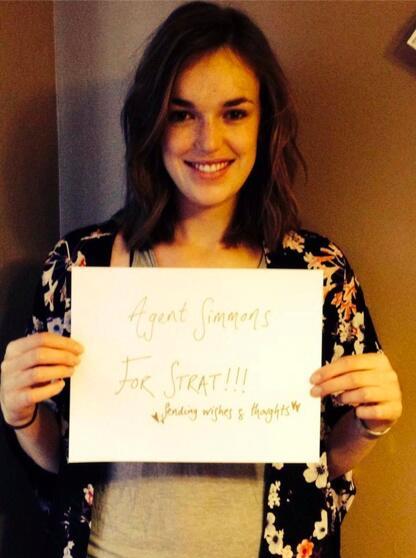 Agent Simmons
FOR STRAT!!!
"Sending wishes & thoghts"